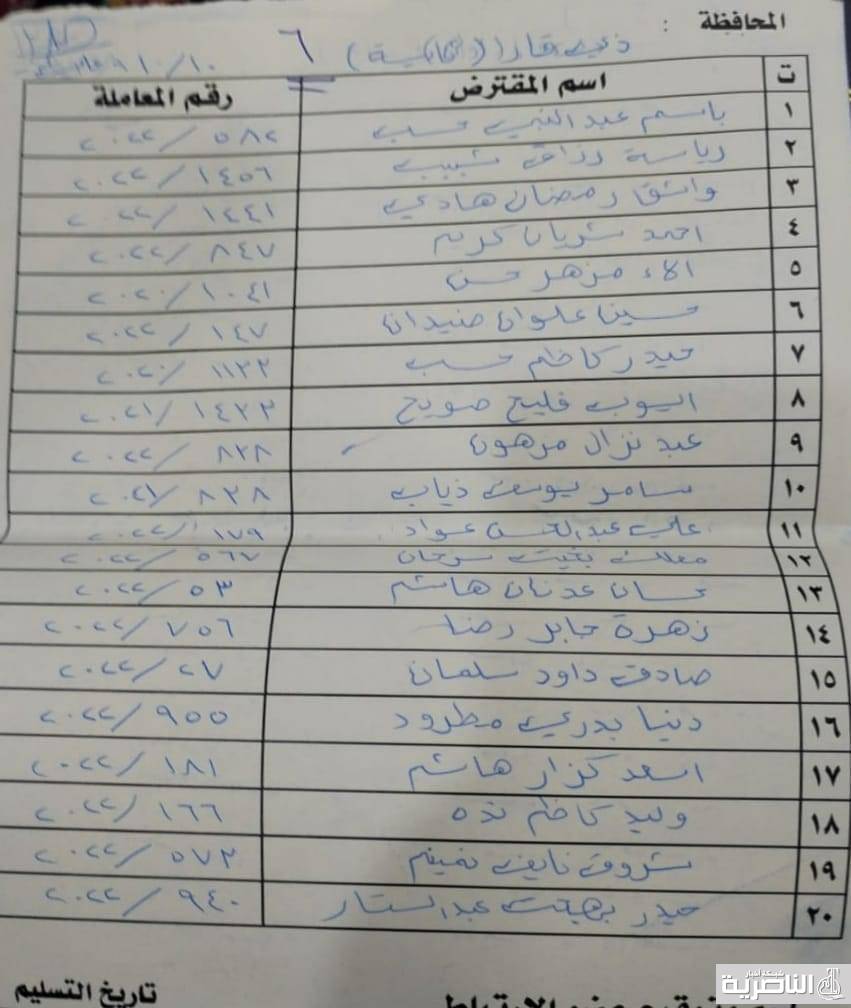 المحافظة :
ذي قار ( ) ٦ ١٠/١٠
ت اسم المقترض رقم المعاملة
١ باسم عبد النبي حسب ٥٨٢ / ٢٠٢٢
٢ رزاق شبيب ١٤٥٦ / ٢٠٢٢
٣ واثق رمضان هادي ١٢٤١ / ٢٠٢٢
٤ احمد شريان كريم ٨٤٧ / ٢٠٢٢
٥ الاء مزهر حسن ١٠٤١ / ٢٠٢٠
٦ حسين علوان صنيدان ١٤٧ / ٢٠٢٢
٧ حيدر كاظم حسب ١١٢٢ / ٢٠٢٠
٨ ايوب فليح صويح ١٤٢٣ / ٢٠٢١
٩ عبد نزال مرهون ٨٢٨ / ٢٠٢٢
١٠ سامر يوسف ذياب ٨٣٨ / ٢٠٢١
١١ علي عبد الحسن عواد ١٧٩ / ٢٠٢٢
١٢ بخيت سرحان ٥٦٧ / ٢٠٢٢
١٣ حسان عدنان هاشم ٥٣ / ٢٠٢٢
١٤ زهرة جابر رضا ٧٥٦ / ٢٠٢٢
١٥ صادق داود سلمان ٢٧ / ٢٠٢٢
١٦ دنيا بدري مطرود ٩٥٥ / ٢٠٢٢
١٧ اسعد كزار هاشم ١٨١ / ٢٠٢٢
١٨ وليد كاظم ١٦٦ / ٢٠٢٢
١٩ شروق نايف نعيم ٥٧٢ / ٢٠٢٢
٢٠ حيدر بهجت عبد الستار ٩٤٠ / ٢٠٢٢
تاريخ التسليم
شبكة أخبار
الناصرية